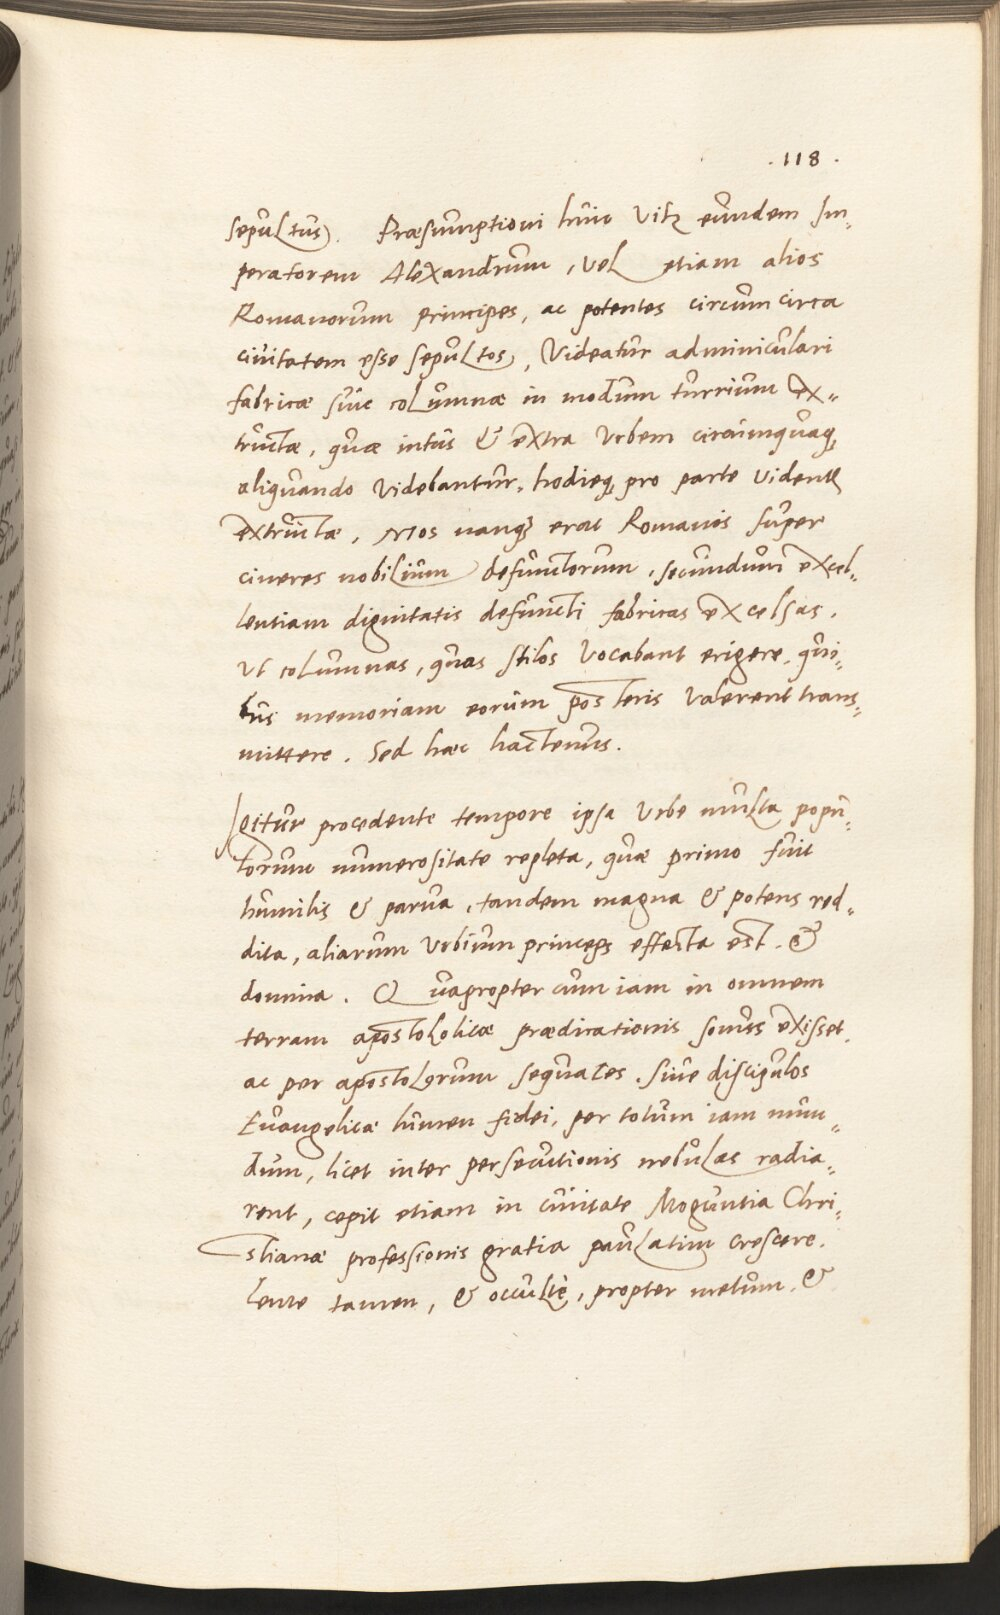 . 118 .
sepultus). Præsumptioni huic vitȝ eundem Im„
peratorem Alexandrum, vel etiam alios
Romanorum principes, ac potentes circumcirca
ciuitatem esse sepultos), videatur adminiculari
fabricæ siue columnæ in modum turrium ex„
tructæ, quæ intus & extra vrbem circumquaqꝫ
aliquando videbantur, hodieqꝫ pro parte videntʳ
extructæ, Mos nanqꝫ erat Romanis super
cineres nobilium defunctorum, secundum excel„
lentiam dignitatis defuncti fabricas excelsas,
vt columnas, quas stilos vocabant erigere, qui„
bus memoriam eorum posteris valerent trans„
mittere. Sed hæc hactenus.
Igitur procedente tempore ipsa vrbe multa popu„
lorum numerositate repleta, quæ primo fuit
humilis & parua, tandem magna & potens red„
dita, aliarum vrbium princeps effecta est, &
domina. Quapropter cum iam in omnem
terram apostololicæ prædicationis sonus exisset,
ac per apostolorum sequaces, siue discipulos
Euangelicæ lumen fidei, per totum iam mun„
dum, licet inter persecutionis nebulas radia„
rent, cepit etiam in ciuitate Moguntia Chri„
stianæ professionis gratia paulatim crescere,
lente tamen, & occultè, propter metum, &